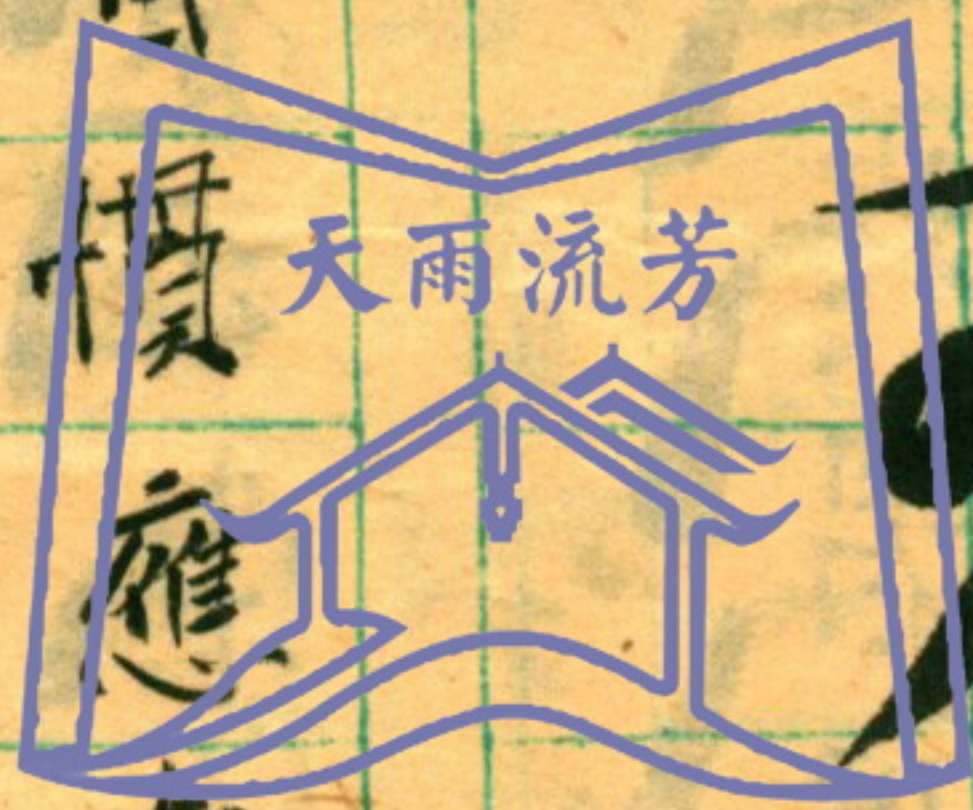 天雨流芳
慣
應